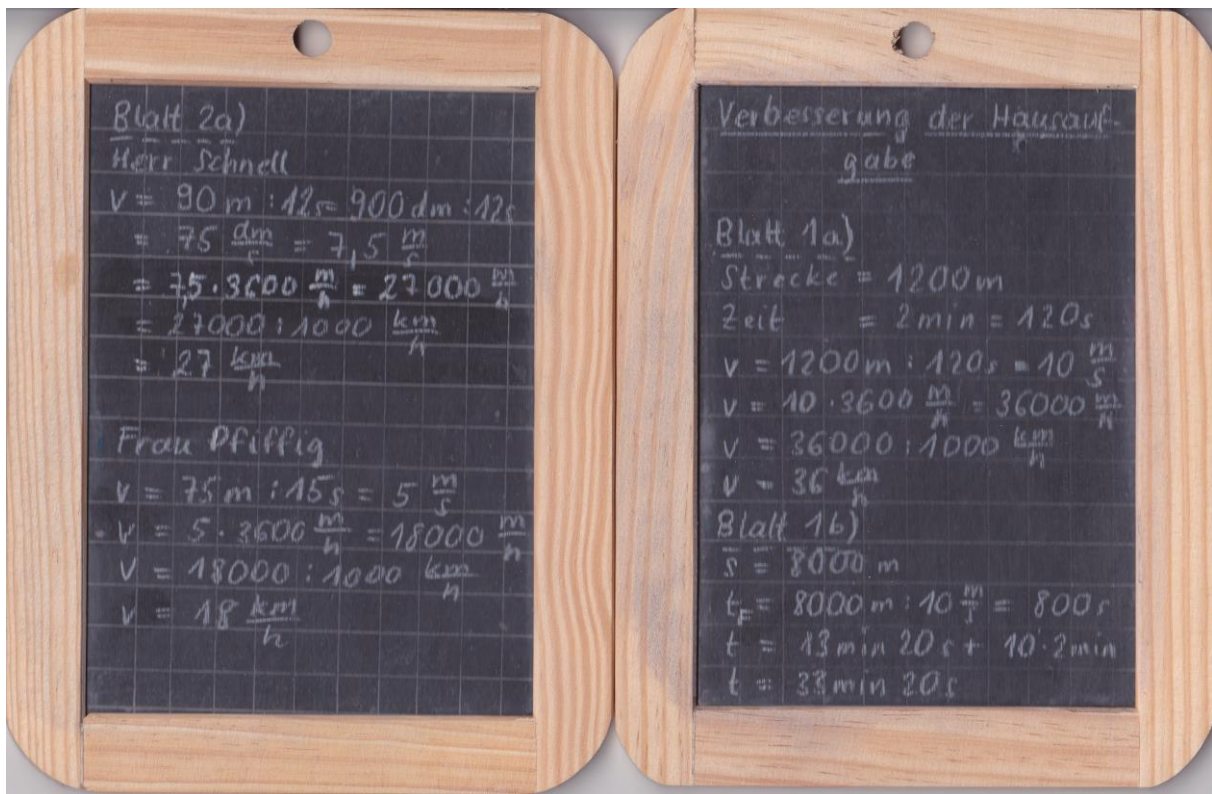 Blatt 2a)
Herr Schnell
v = 90 m : 12s = 900 dm : 12s
= 75 dm/s = 7,5 m/s
= 7,5 · 3600 m/h = 27000 m/h
= 27000 : 1000 km/h
= 27 km/h
Frau Pfiffig
v = 75 m : 15 s = 5 m/s
v = 5 · 3600 m/h = 18000 m/h
v = 18000 : 1000 km/h
v = 18 km/h
Verbesserung der Hausauf-
gabe
Blatt 1a)
Strecke = 1200 m
Zeit = 2 min = 120 s
v = 1200 m : 120 s = 10 m/s
v = 10 · 3600 m/h = 36000 m/h
v = 36000 : 1000 km/h
v = 36 km/h
Blatt 1b)
s = 8000 m
t_F = 8000 m : 10 m/s = 800 s
t = 13 min 20 s + 10 · 2 min
t = 33 min 20 s